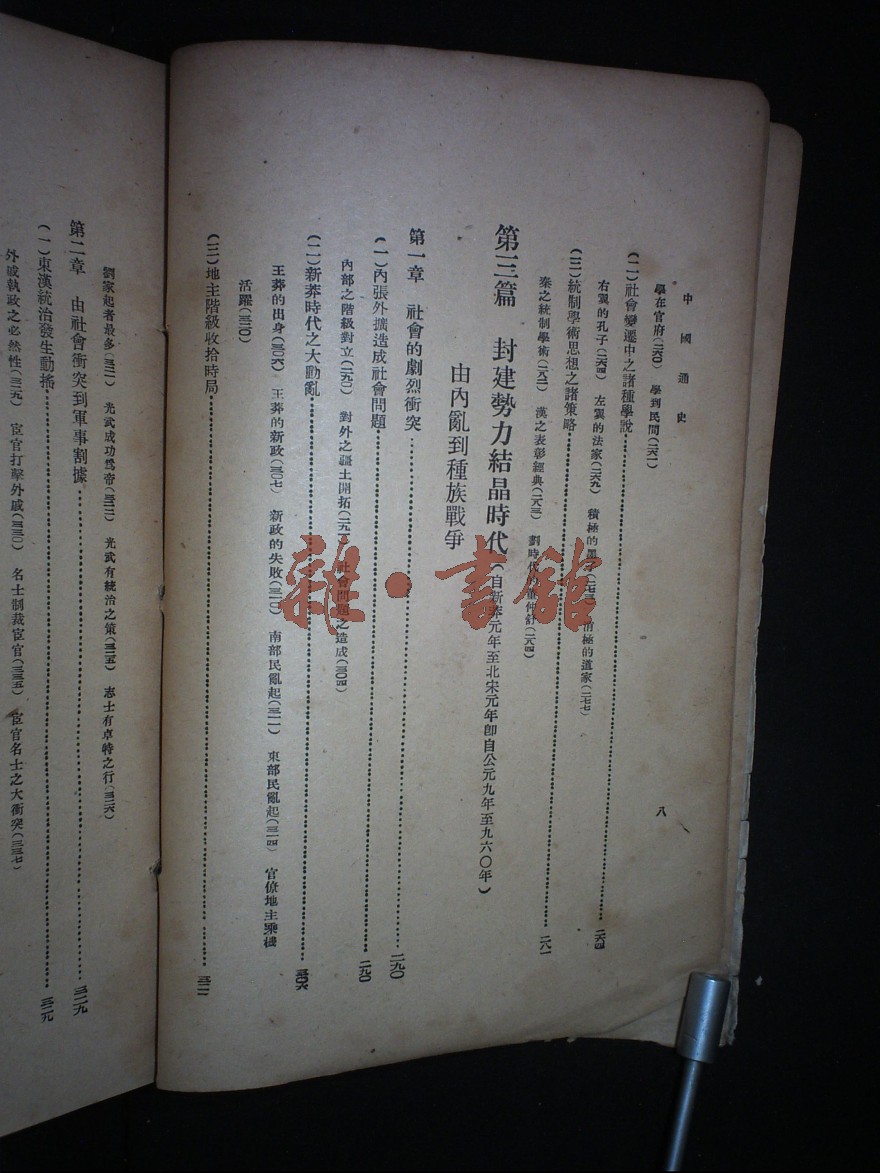 中國通史
八
學在官府(二六〇) 學到民間(二六一)
(二)社會變遷中之諸種學說……二六四
右翼的孔子(二六四) 左翼的法家(二六九) 積極的墨子(二七三) 消極的道家(二七七)
(三)統制學術思想之諸策略……二八一
秦之統制學術(二八一) 漢之表彰經典(二八三) 劃時代的董仲舒(二八四)
第三篇 封建勢力結晶時代(自新莽元年至北宋元年卽自公元九年至九六〇年)
由內亂到種族戰爭
第一章 社會的劇烈衝突……二九〇
(一)內張外擴造成社會問題……二九〇
內部之階級對立(二九〇) 對外之疆土開拓(二九 社會問題之造成(三〇四)
(二)新莽時代之大動亂……三〇六
王莽的出身(三〇六) 王莽的新政(三〇七) 新政的失敗(三一〇) 南部民亂起(三一一) 東部民亂起(三一四) 官僚地主乘機
活躍(三二〇)
(三)地主階級收拾時局……三二一
劉家起者最多(三二一) 光武成功爲帝(三二三) 光武有統治之策(三二五) 志士有卓特之行(三二六)
第二章 由社會衝突到軍事割據……三二九
(一)東漢統治發生動搖……三二九
外戚執政之必然性(三二九) 宦官打擊外戚(三三〇) 名士制裁宦官(三三五) 宦官名士之大衝突(三三七)
雜·書館